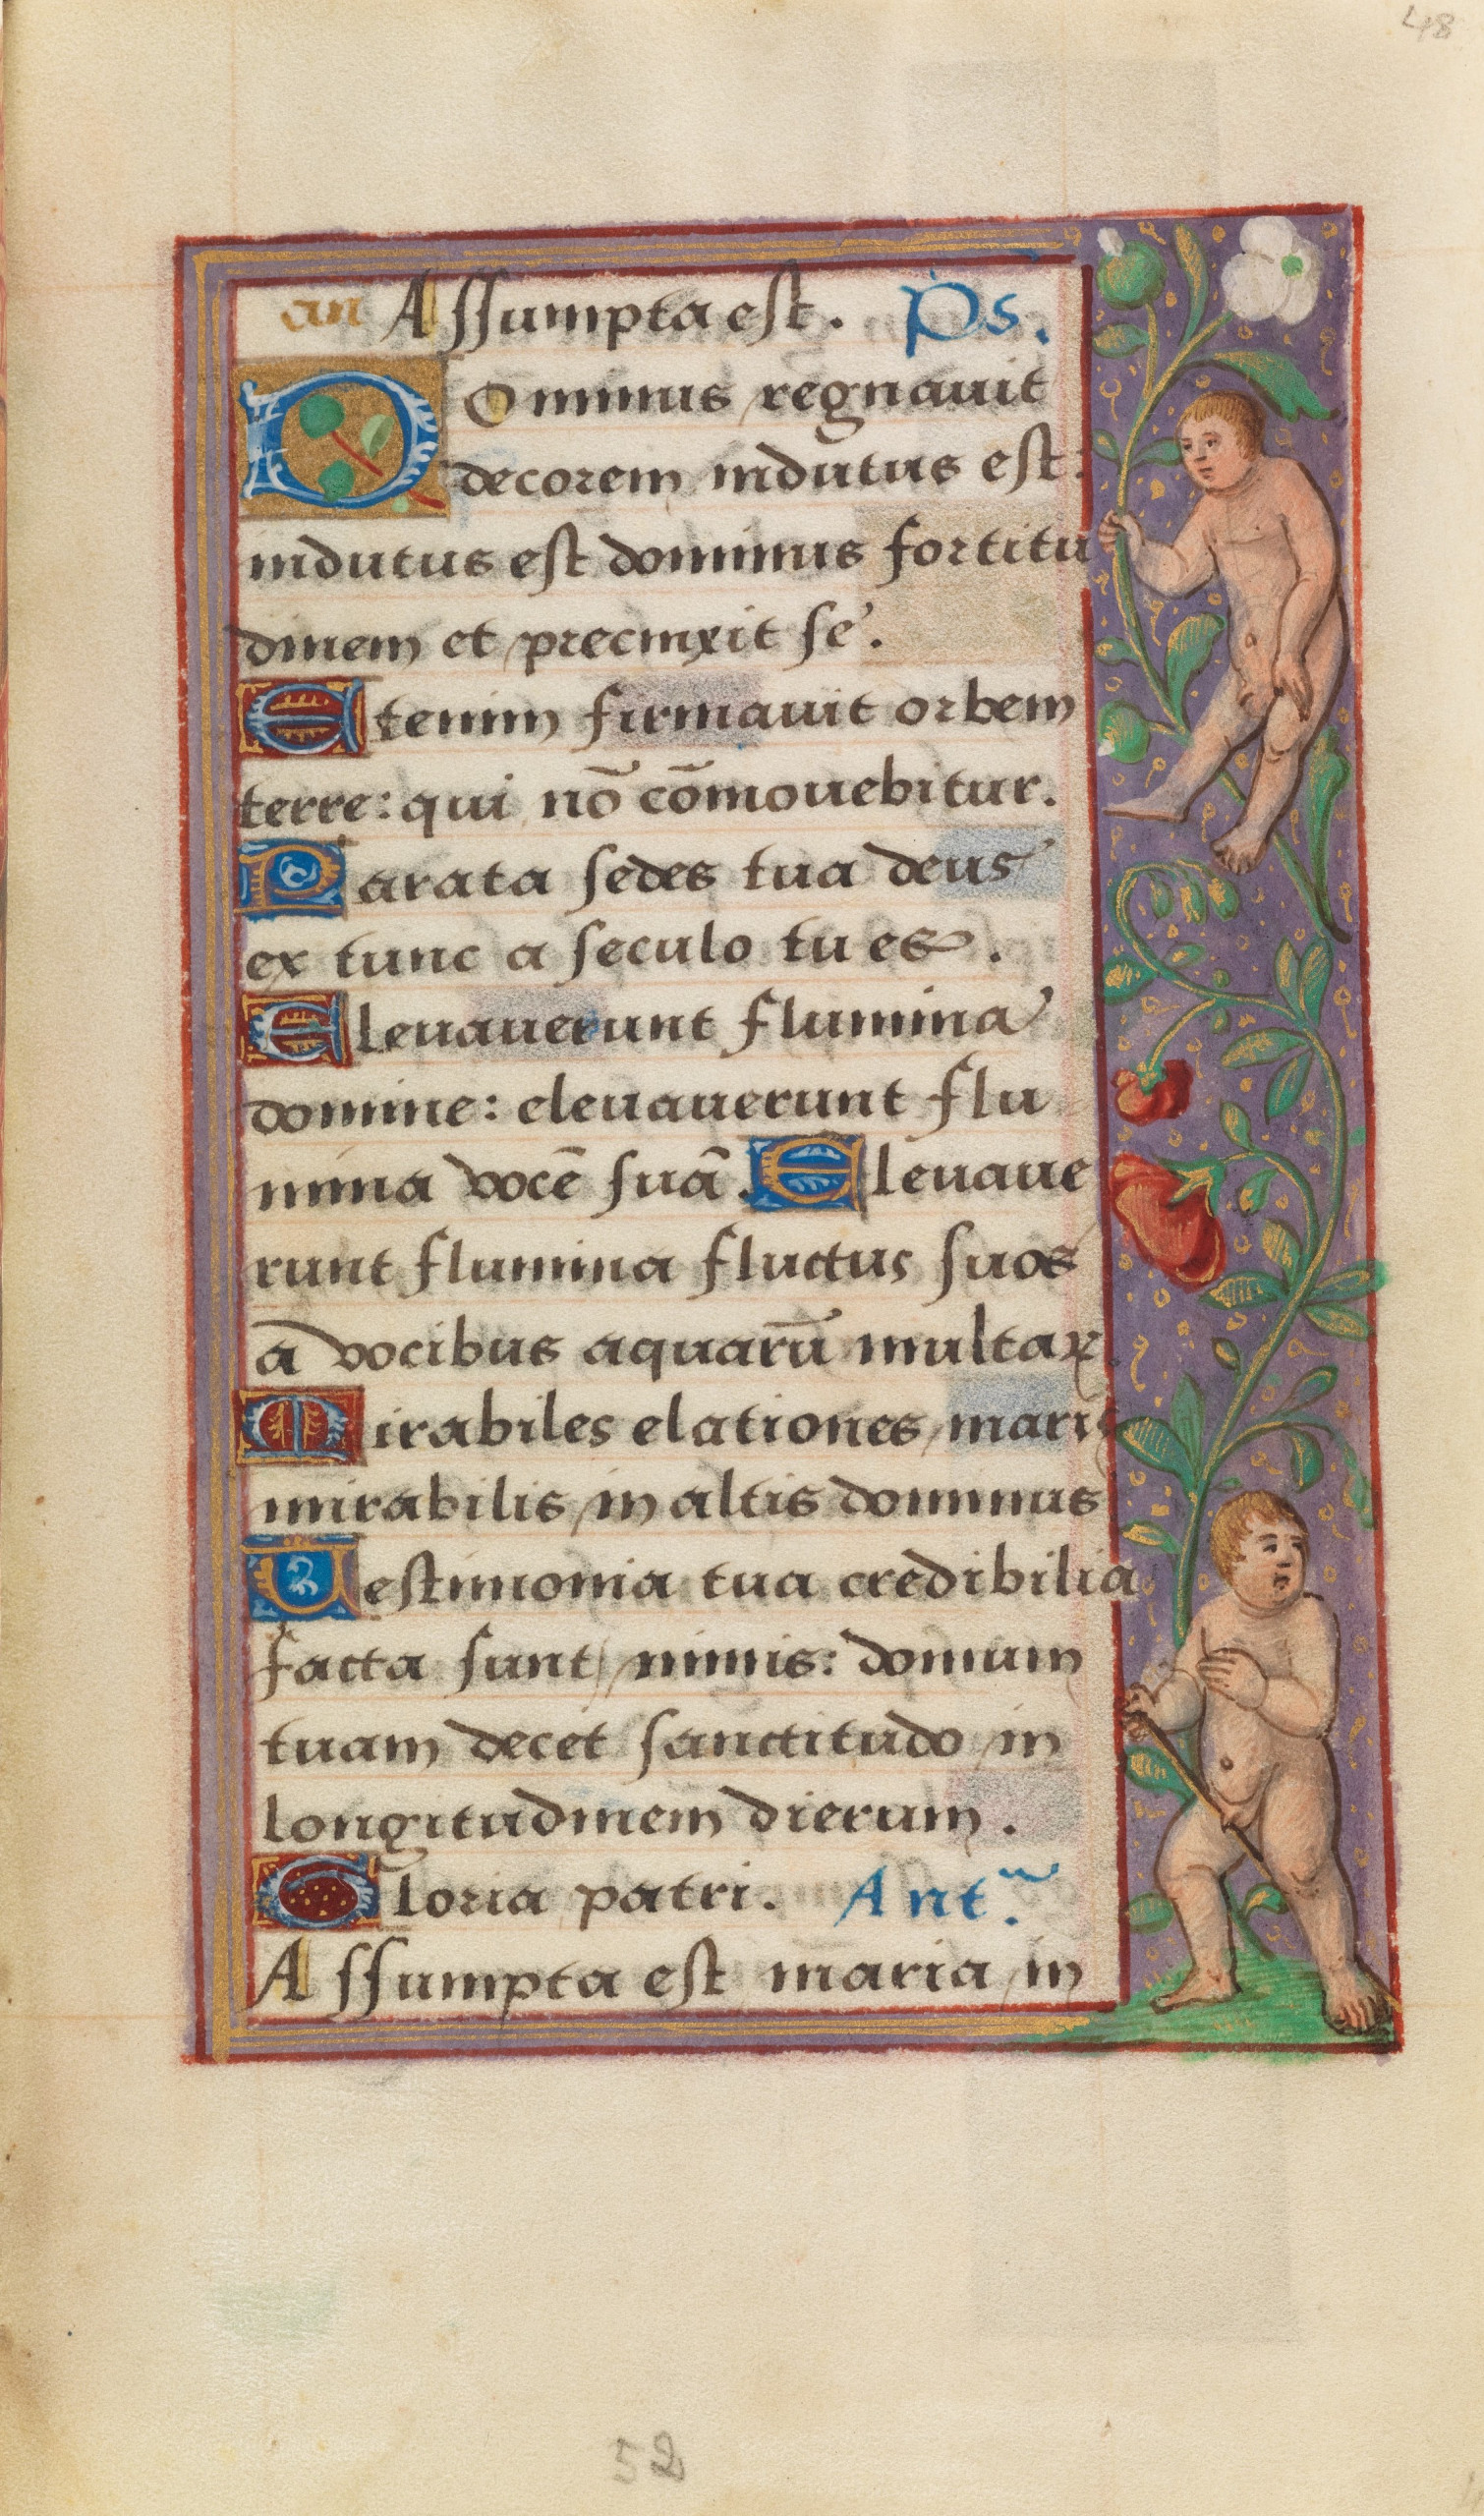 48
an Assumpta est. Ps.
Dominus regnauit
decorem indutus est:
indutus est dominus fortitu
dinem et precinxit se.
Etenim firmauit orbem
terre: qui nō cōmouebitur.
Parata sedes tua deus
ex tunc a seculo tu es.
Eleuauerunt flumina
domine: eleuauerunt flu
mina vocē suā. Eleuaue
runt flumina fluctus suos
a vocibus aquarū multaꝝ.
Mirabiles elationes maris
mirabilis in altis dominus
Testimonia tua credibilia
facta sunt nimis: domum
tuam decet sanctitudo in
longitudinem dierum.
Gloria patri. Ant.
Assumpta est maria in
52